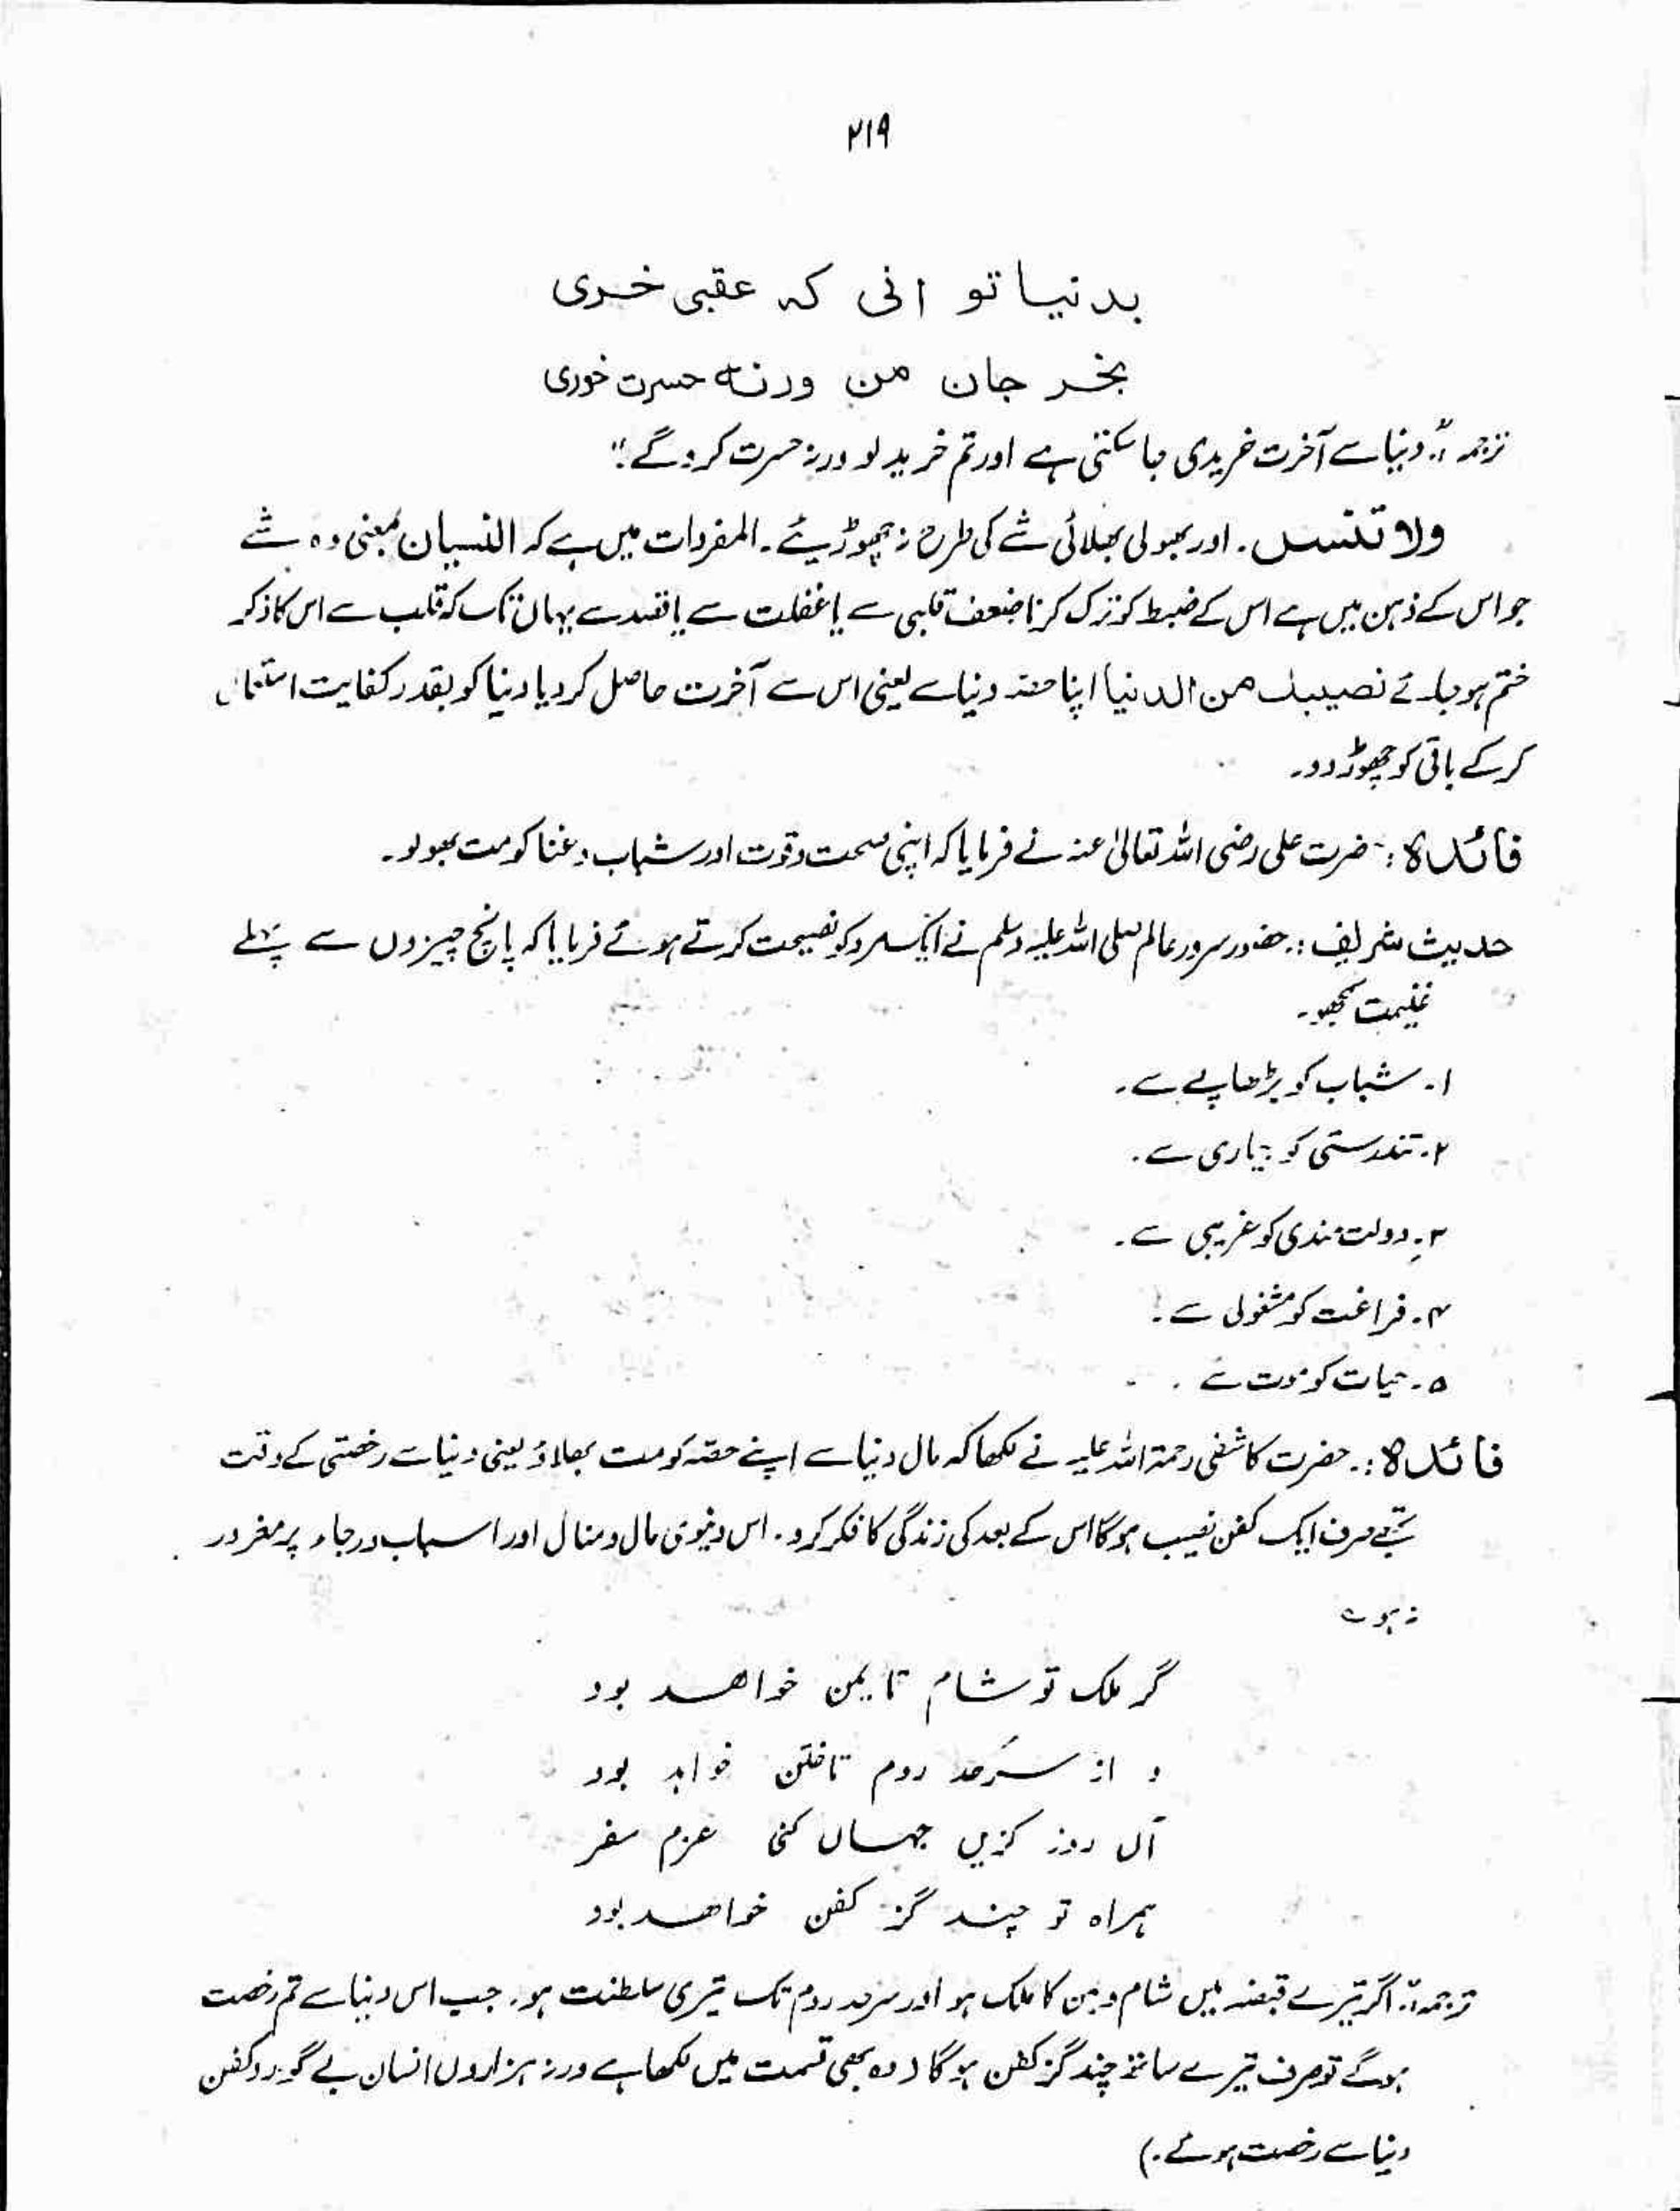 ۲۱۹
بدنیا تو انی کہ عقبی خری
بخر جان من ورنہ حسرت خوری
ترجمہ :۔ "دنیا سے آخرت خریدی جا سکتی ہے اور تم خرید لو ورنہ حسرت کرو گے۔"
ولا تنس۔ اور بھولی بھلائی شے کی طرح نہ چھوڑیئے۔ المفردات میں ہے کہ النسیان بمعنی وہ شے
جو اس کے ذہن میں ہے اس کے ضبط کو ترک کرنا ضعف قلبی سے یا غفلت سے یا قصد سے یہاں تک کہ قلب سے اس کا ذکر
ختم ہو جائے نصیبک من الدنیا اپنا حصہ دنیا سے یعنی اس سے آخرت حاصل کر دیا دنیا کو بقدر کفایت استعمال
کر کے باقی کو چھوڑ دو۔
فائدہ :۔ حضرت علی رضی اللہ تعالیٰ عنہ نے فرمایا کہ اپنی صحت و قوت اور شباب و غنا کو مت بھولو۔
حدیث شریف :۔ حضور سرور عالم صلی اللہ علیہ وسلم نے ایک مرد کو نصیحت کرتے ہوئے فرمایا کہ پانچ چیزوں سے پہلے
غنیمت سمجھو۔
۱۔ شباب کو بڑھاپے سے۔
۲۔ تندرستی کو بیماری سے۔
۳۔ دولت مندی کو غریبی سے۔
۴۔ فراغت کو مشغولی سے۔
۵۔ حیات کو موت سے۔
فائدہ :۔ حضرت کاشفی رحمۃ اللہ علیہ نے لکھا کہ مال دنیا سے اپنے حصہ کو مت بھلاؤ یعنی دنیا سے رخصتی کے وقت
تجھے صرف ایک کفن نصیب ہوگا اس کے بعد کی زندگی کا فکر کرو۔ اس دنیوی مال و منال اور اسباب و رجاء پر مغرور
نہ ہو ؎
گر ملک تو شام تا یمن خواهد بود
و از سرحد روم تا ختن خواہد بود
آں روز کزیں جہاں کنی عزم سفر
ہمراہ تو چند گز کفن خواهد بود
ترجمہ :۔ اگر تیرے قبضہ میں شام و یمن کا ملک ہو اور سرحد روم تک تیری سلطنت ہو۔ جب اس دنیا سے تم رخصت
ہوگے تو صرف تیرے ساتھ چند گز کفن ہوگا (وہ بھی قسمت میں لکھا ہے ورنہ ہزاروں انسان بے گور و کفن
دنیا سے رخصت ہوئے۔)